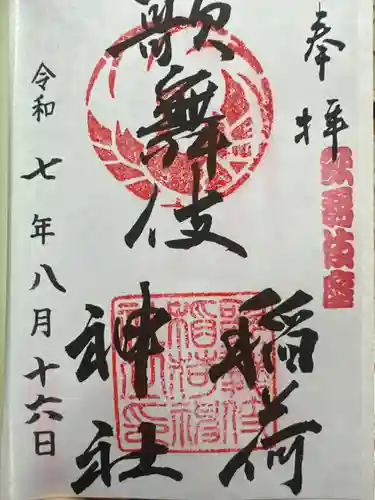 奉拝
歌舞伎座
歌舞伎
稲荷
神社
令和七年八月十六日